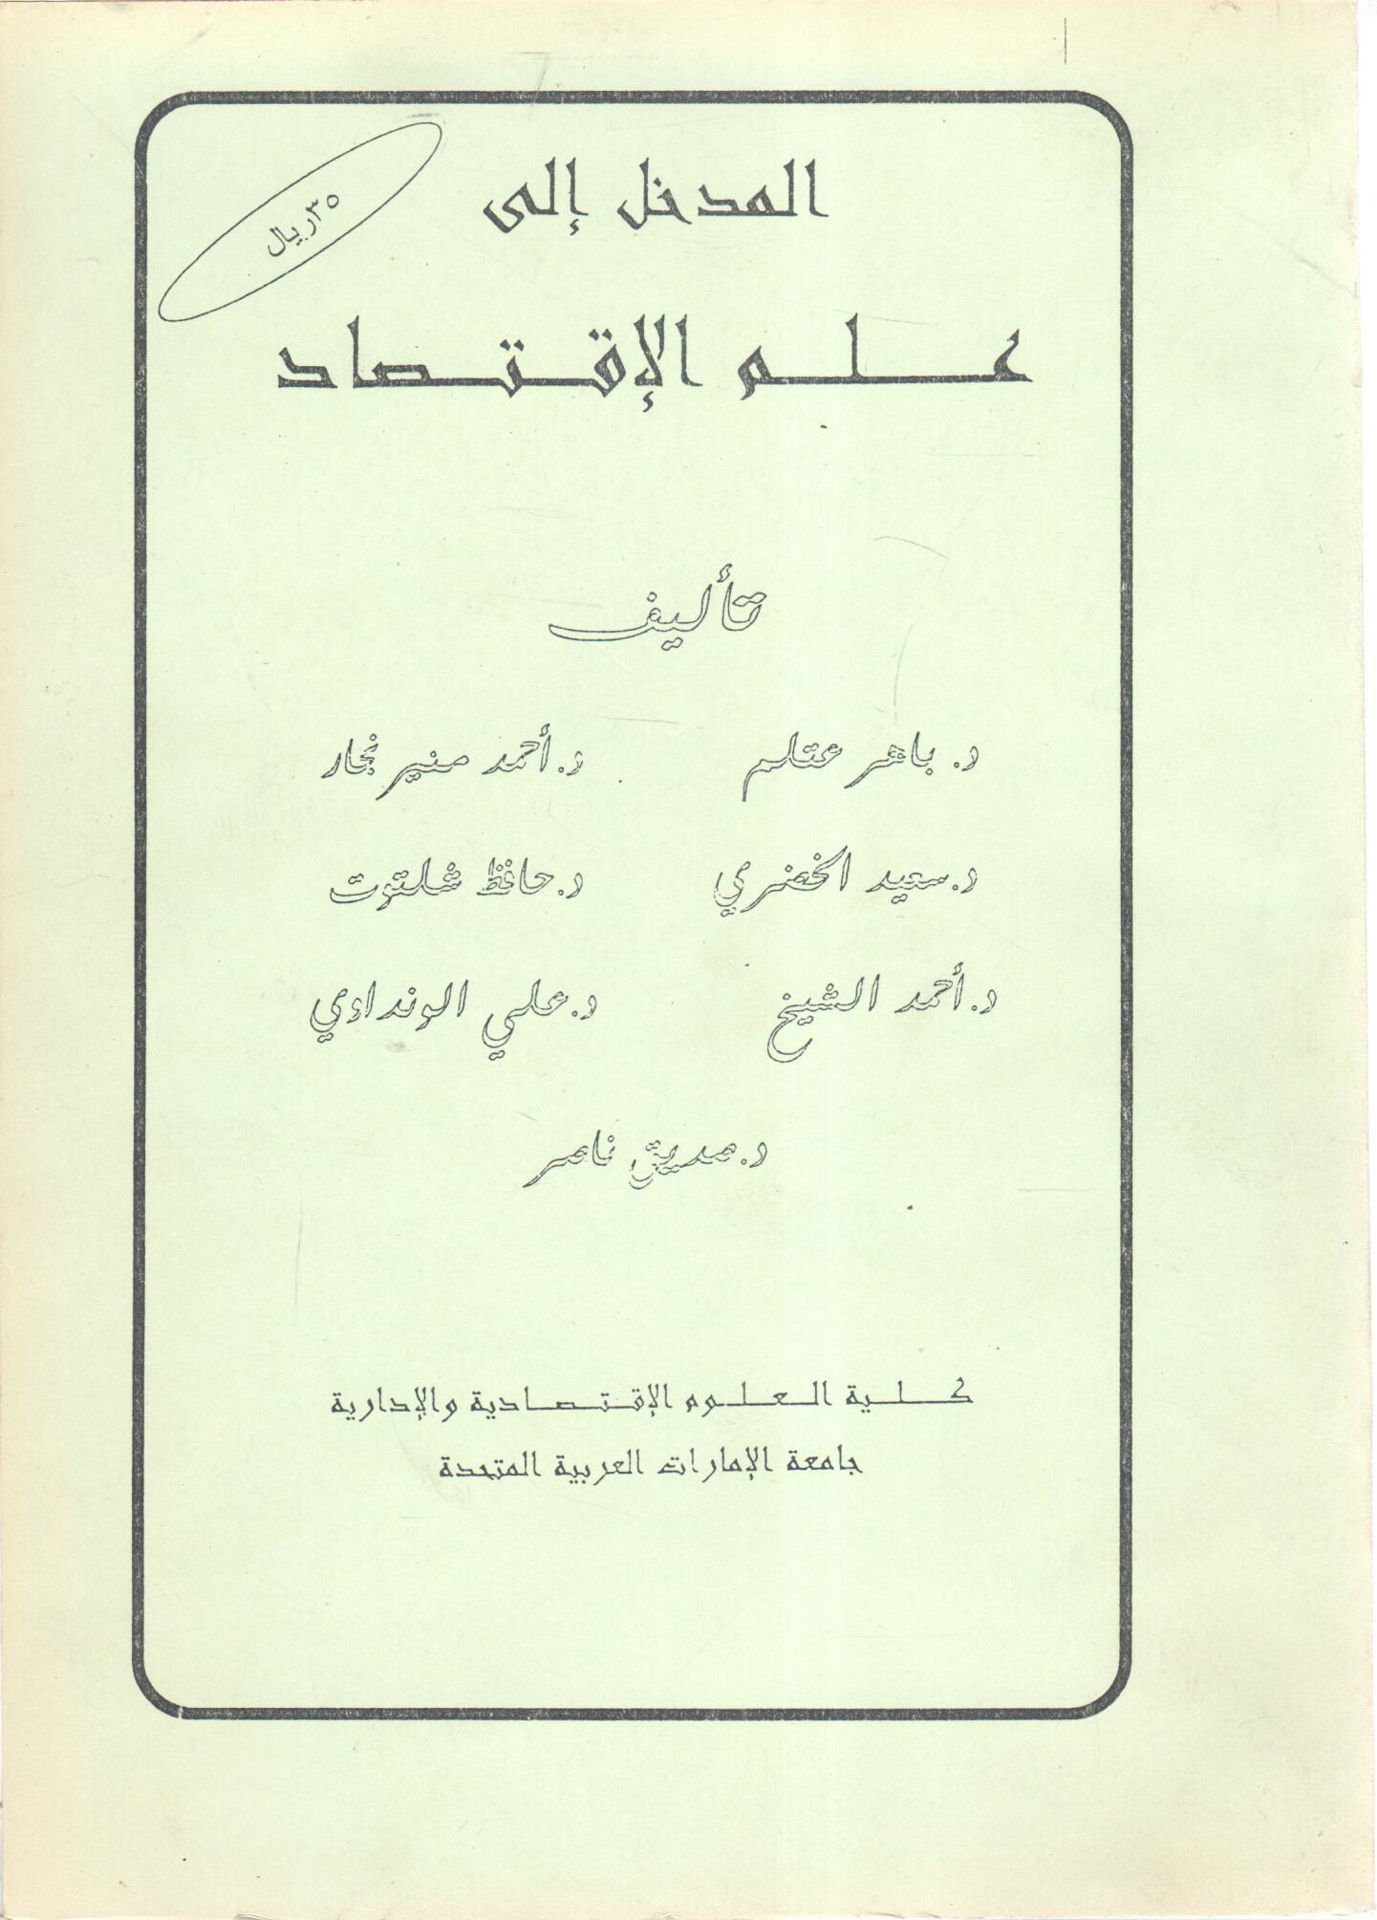 ٣٥ ريال
المدخل إلى
علم الإقتصاد
تأليف
د. باهر عتلم د. أحمد منير نجار
د. سعيد الخضري د. حافظ شلتوت
د. أحمد الشيخ د. علي الونداوي
د. صديق ناصر
كلية العلوم الإقتصادية والإدارية
جامعة الإمارات العربية المتحدة